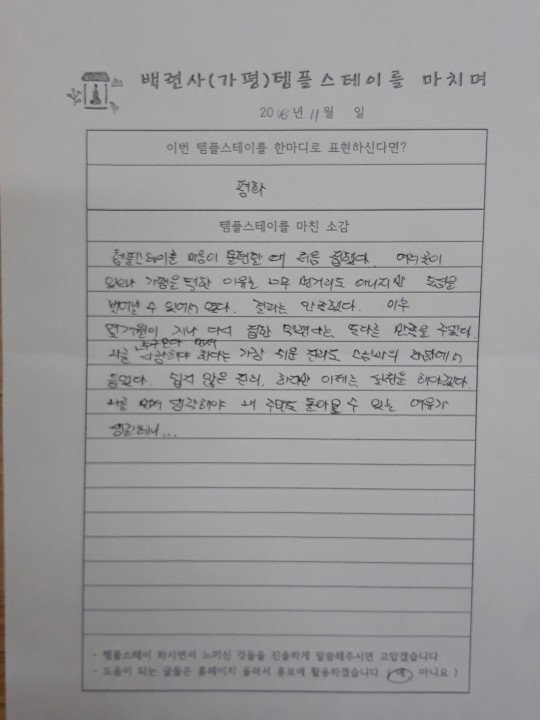 백련사(가평)템플스테이를 마치며
2016년 11월 일
이번 템플스테이를 한마디로 표현하신다면?
평화
템플스테이를 마친 소감
템플스테이를 마음이 불편할 때 처음 접했다. 여러곳이
있으나 가평을 택한 이유는 너무 먼거리도 아니지만 도심을
벗어날 수 있어서 였다. 결과는 만족했다. 이후
몇개월이 지나 다시 접한 백련사는 또다른 만족을 주었다.
누구보다 먼저
나를 사랑해야 한다는 가장 쉬운 진리도 스님과의 대화에서
들었다. 쉽지 않은 진리, 하지만 이제는 실천을 해야겠다.
나를 먼저 생각해야 내 주변도 돌아볼 수 있는 여유가
생길테니...
- 템플스테이 하시면서 느끼신 것들을 진솔하게 말씀해주시면 고맙겠습니다.
- 도움이 되는 글들은 홈페이지 올려서 홍보에 활용하겠습니다 ( 예 아니요 )